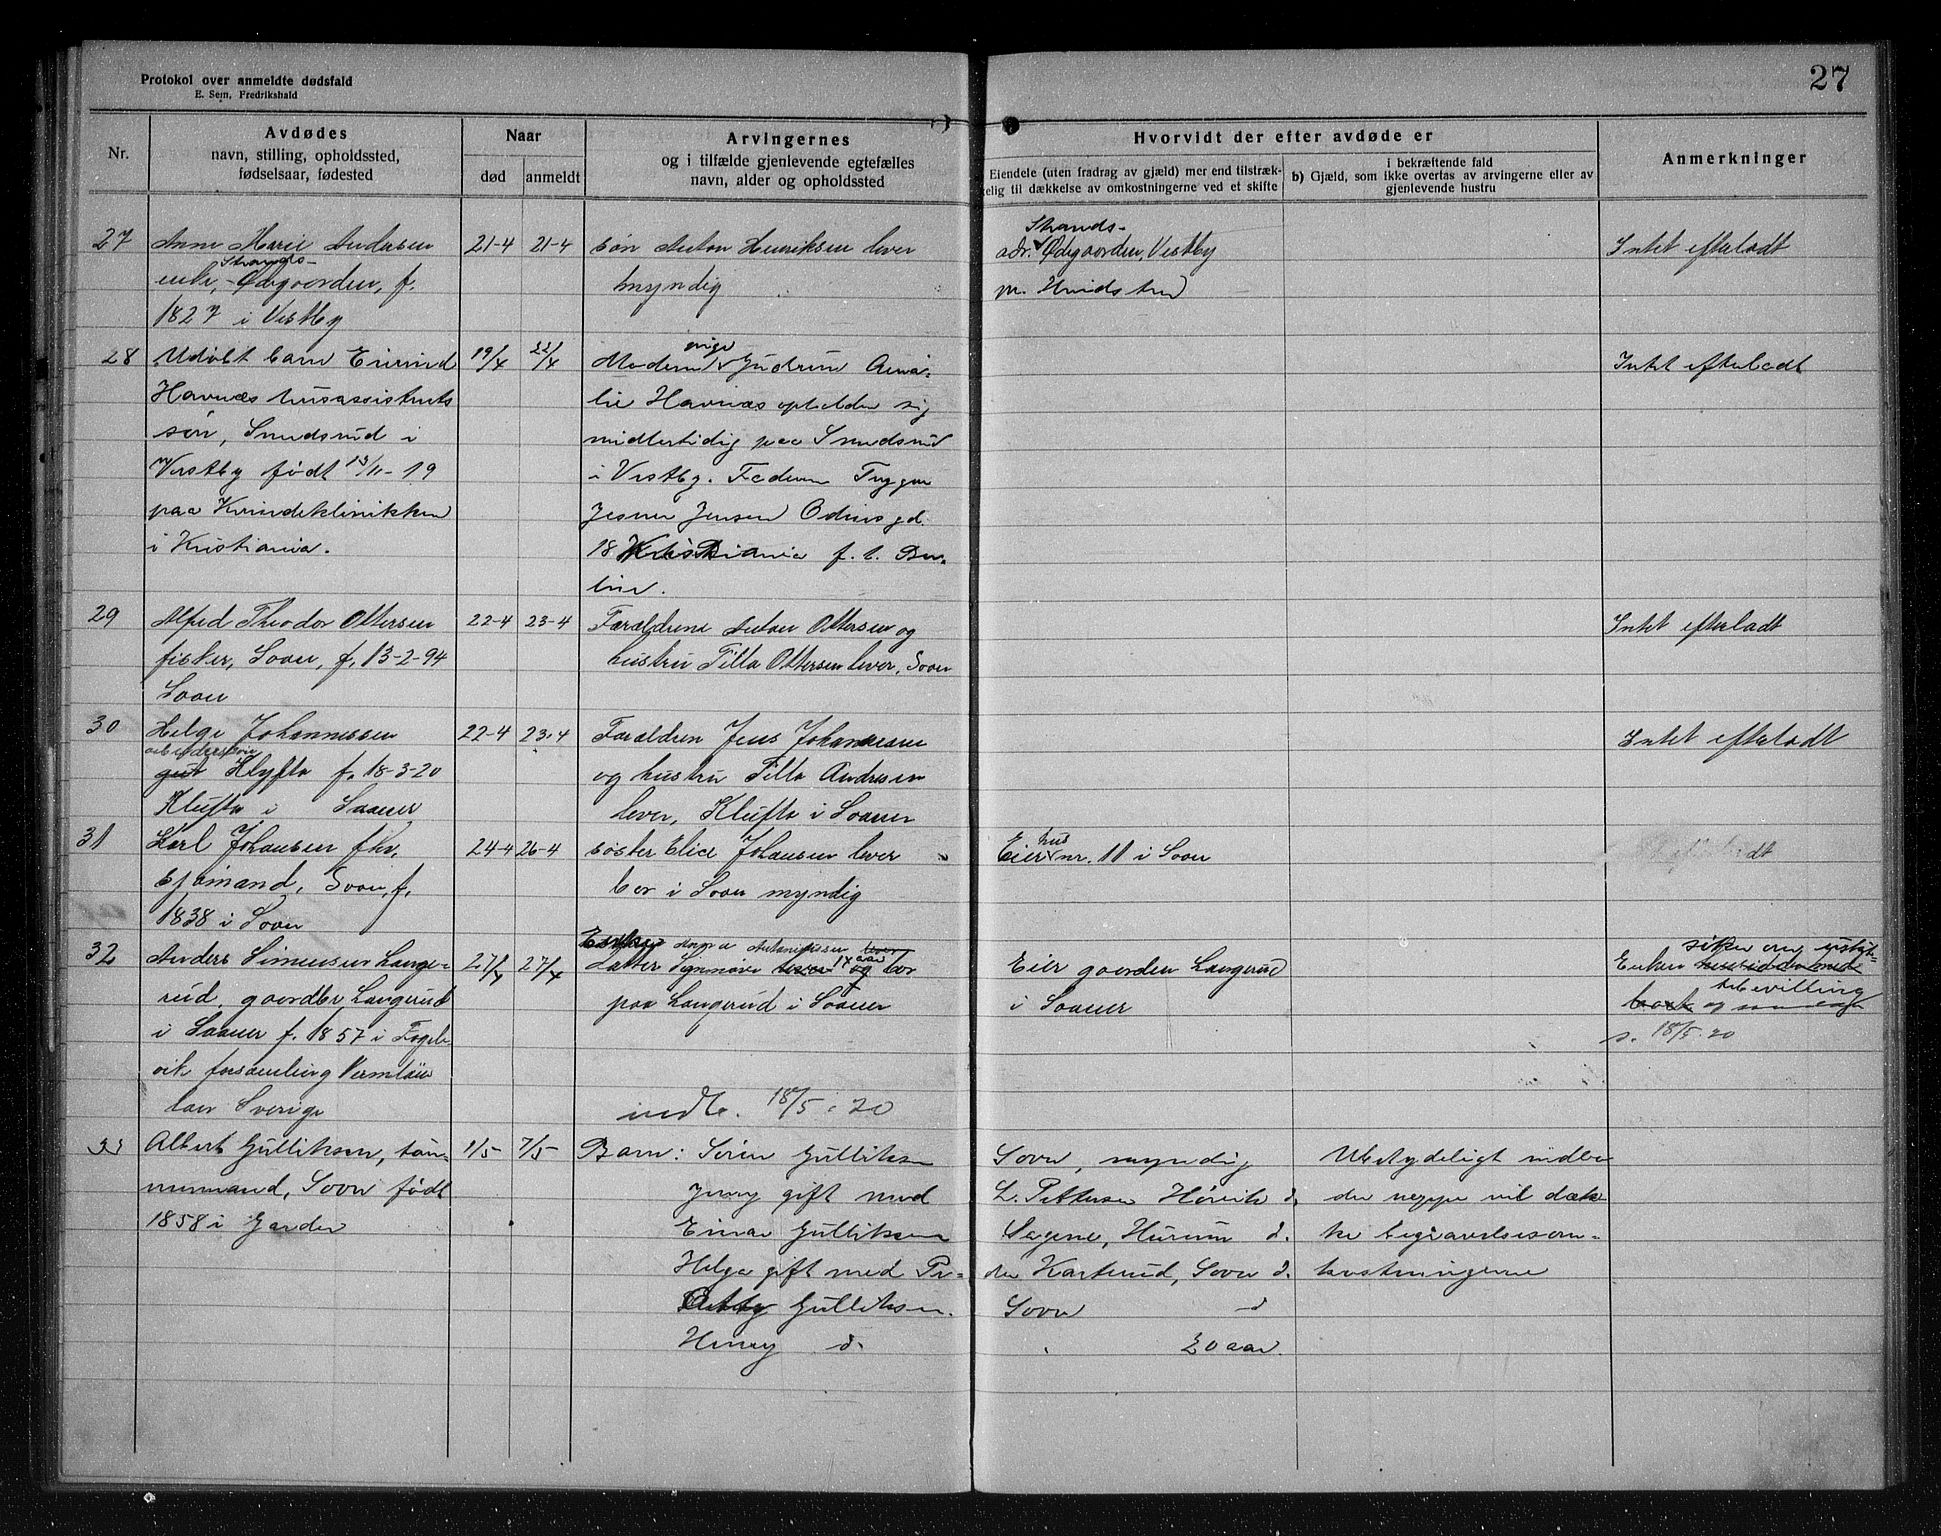 Protokol over anmeldte dødsfald
E. Sem, Fredrikshald
27
Nr.
Avdødes
navn, stilling, opholdssted,
fødselsaar, fødested
Naar
død
anmeldt
Arvingernes
og i tilfælde gjenlevende egtefælles
navn, alder og opholdssted
Hvorvidt der efter avdøde er
Eiendele (uten fradrag av gjæld) mer end tilstræk-
kelig til dækkelse av omkostningerne ved et skifte
i bekræftende fald
b) Gjæld, som ikke overtas av arvingerne eller av
gjenlevende hustru
Anmerkninger
27
Anne Marie Andersen
Strands-
enke, Ødegaarden, f.
1827 i Vestby
21-4
21-4
Søn Anton Henriksen lever
myndig
Strands-
adr. Ødegaarden, Vestby
pr. Hvidsten
Intet efterladt
28
Udøbt barn Eivind
Havnæs husassistents
søn, Smedsrud i
Vestby født 13/11-19
paa Kvindeklinikken
i Kristiania.
19/4
22/4
Moderen pige Gudrun Ama-
lie Havnæs opholder sig
midlertidig paa Smedsrud
i Vestby. Faderen Trygve
Jesner Jensen Odinsgd.
18 Kristiania f. t. Ber-
lin.
Intet efterladt
29
Alfred Theodor Ottersen
fisker, Soon, f. 13-2-94
Soon
22-4
23-4
Forældrene Anton Ottersen og
hustru Tilla Ottersen lever, Soon
Intet efterladt
30
Helge Johannessen
arbeiderssøn
gut Klyfta f. 18-3-20
Klufta i Saaner
22-4
23-4
Forældren Jens Johannesen
og hustru Tilla Andresen
lever, Klufta i Soaner
Intet efterladt
31
Karl Johansen fhv.
sjømand, Soon, f.
1838 i Soon
24-4
26-4
Søster Elise Johansen lever
bor i Soon myndig
Eier hus nr. 11 i Soon
32
Anders Simensen Lange-
rud, gaardbr Langerud
i Saaner f. 1857 i Fogel-
vik forsamling Vermlan
læn Sverige
27/4
27/4
Enke Anne Antonisen lever
Datter Synnøve lever 14 aar og bor
paa Langerud i Soaner
indk. 18/5. 20
Eier gaarden Langerud
i Soaner
sitter om uskifte-
Enken
bevilling
s. 18/5. 20
33
Albert Gulliksen, tøm-
mermand, Soon født
1858 i Garder
1/5
7/5
Barn: Søren Gulliksen
Jenny gift med
Einar Gulliksen
Helga gift med Pe-
Gulliksen.
Henry d.
Soon, myndig
L. Pettersen Hørvik d.
Sagene, Hurum d.
der Karterud, Soon d.
Soon d
20 aar.
Ubetydeligt indbo
der neppe vil dæk-
ke begravelsesom-
kostningerne